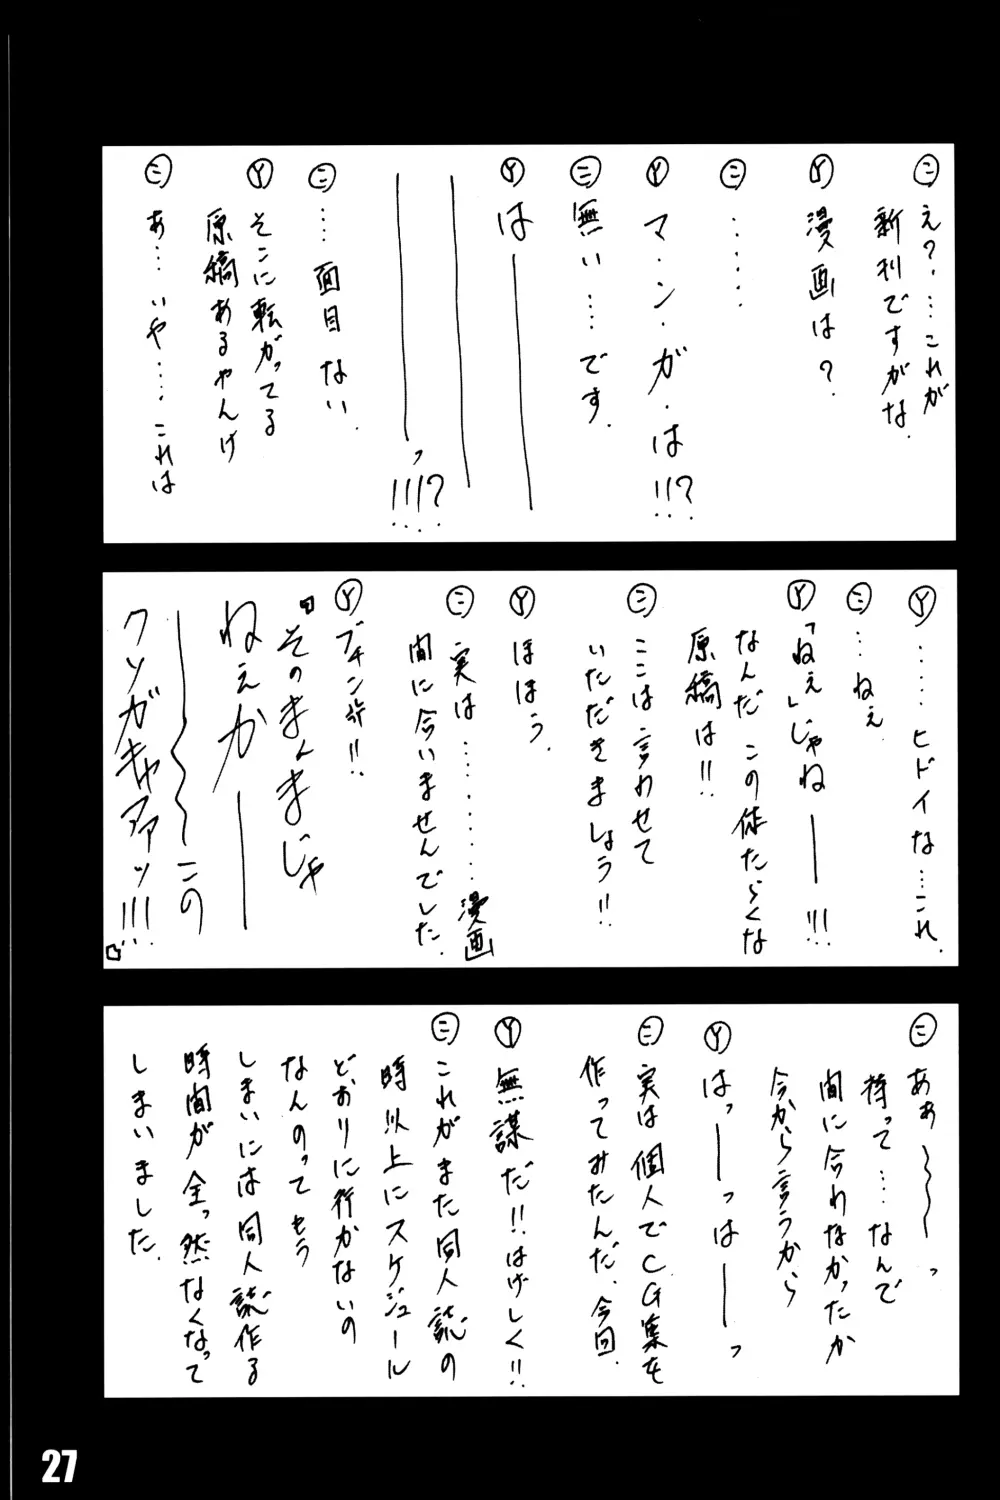 ㋥ え?‥…これが
新刊ですがな.
Ⓨ 漫画は?
㋥ ‥‥‥
Ⓨ マ・ン・ガ・は!!?
㋥ 無い…です.
Ⓨ は────
────
────っ!!!?
㋥ …面目ない.
Ⓨ そこに転がってる
原稿あるやんけ
㋥ あ…いや…‥これは
Ⓨ ……ヒドイな…これ.
㋥ …ねぇ
Ⓨ 「ねぇ」じゃね──!!!
なんだこの体たらくな
原稿は!!
㋥ ここは言わせて
いただきましょう!!
Ⓨ ほほう.
㋥ 実は………漫画
間に合いませんでした.
Ⓨ ブチン!!
『そのまんまじゃ
ねぇか───
─〜〜〜この
クソガキャアァァッ!!!』
㋥ ああ〜〜〜っ
待って…なんで
間に合わなかったか
今から言うから
Ⓨ はっ──っは──っ
㋥ 実は個人でCG集を
作ってみたんだ、今回.
Ⓨ 無謀だ!!はげしく!!
㋥ これがまた同人誌の
時以上にスケジュール
どおりに行かないの
なんのってもう
しまいには同人誌作る
時間が全っ然なくなって
しまいました.
27